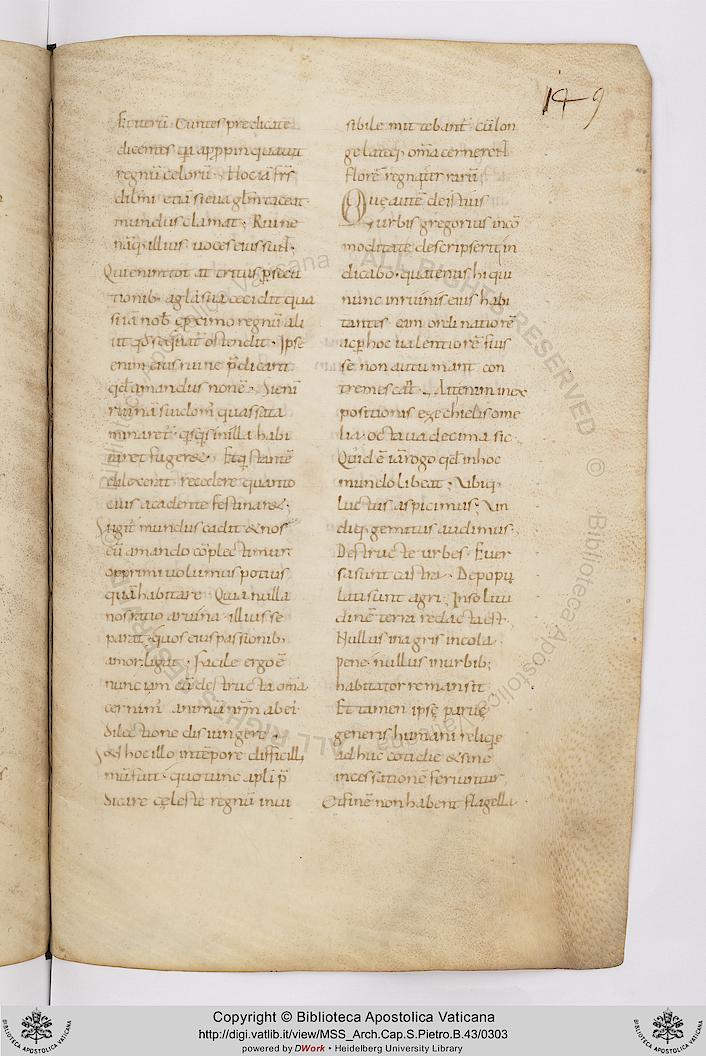 149
Et iterū · Euntes predicate
dicentes q̄a app̄pinquauit
regnū celorū · Hoc iā frs̄
dil̄mi etiā si euāgl̄m taceat
mundus clamat · Ruine
nāq; illius uoces eius sūt ·
Qui enim tot at tritus p̄secu
tionib; a gl̄a sua cecidit qua
si iā nob̄ e p̄ximo regnū ali
ut qd̄ sequat̄ ostendit · Ipse
enim eius ruine p̄dicant
qd̄ amandus non ē · Si eni
ruinā sui dom; quassata
minaret̄ · q̄sq̄s in illa habi
taret fugeret · Et q̄ stantē
dilexerat recedere quanto
cius a cadente festinaret ·
Si igit̄ mundus cadit & nos
eū amando cōplectimur
opprimi uolumus potius
quā habitare · Quia nulla
nos ratio a ruina illius se
parat · quos eius passionib;
amor ligat · Facile ergo ē
nunc iam cū destructa om̄a
cernim; animū nr̄m ab ei;
dilectione disiungere ·
Sed hoc illo in tēpore difficilli
mū fuit · quo tunc ap̄li p̄
dicare cęleste regnū inui
sibile mittebant̄ · cū lon
ge lateq; om̄a cernerent
florere regna t̄rarū ·
Quę autē de istius
urbis gregorius incō
moditate descripserit in
dicabo · quatenus hi qui
nunc in ruinis eius habi
tantes eam ordinatiorē
ac p̄ hoc ualentiorē fuis
se non autumant con
tremescant · Ait enim in ex
positionis ezechielis ome
lia octaua decima sic ·
Quid ē iā rogo qd̄ in hoc
mundo libeat · Vbiq;
luctus aspicimus · Vn
diq; gemitus audimus ·
Destructe urbes · Euer
sa sunt castra · Depopu
lati sunt agri · In solitu
dinē terra redacta est ·
Nullus in agris incola ·
pene nullus in urbib;
habitator remansit ·
Et tamen ipsę paruę
generis humani reliquie
adhuc cotidie & sine
incessatione feriuntur
Et finē non habent flagella ·
Copyright © Biblioteca Apostolica Vaticana
http://digi.vatlib.it/view/MSS_Arch.Cap.S.Pietro.B.43/0303
powered by DWork • Heidelberg University Library